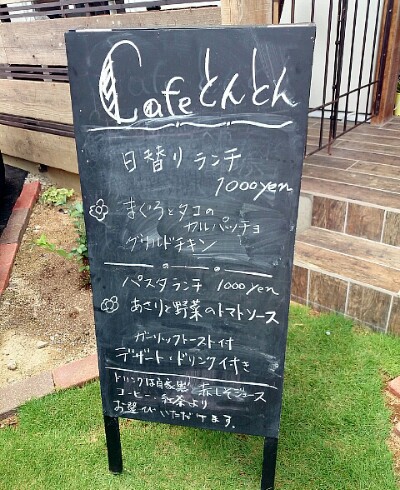 Cafe とんとん
日替りランチ
1000yen
まぐろとタコの
カルパッチョ
グリルドチキン
パスタランチ 1000yen
あさりと野菜のトマトソース
ガーリックトースト付
デザート・ドリンク付き
ドリンクは自家製 赤しそジュース
コーヒー・紅茶より
お選びいただけます。